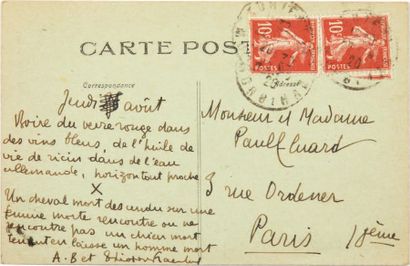 CARTE POST
Correspondance
Jeudi août
Boire du verre rouge dans
des vins bleus, de l'huile de
vie de ricin dans de l'eau
allemande, horizon tout proche
X
Un cheval mort descendu sur une
femme morte rencontre ou ne
rencontre pas un chien mort
tenant en laisse un homme mort
A.B et
Adresse
Monsieur et Madame
Paul Eluard
3 rue Ordener
Paris 18ème
10c 10c
POSTES POSTES